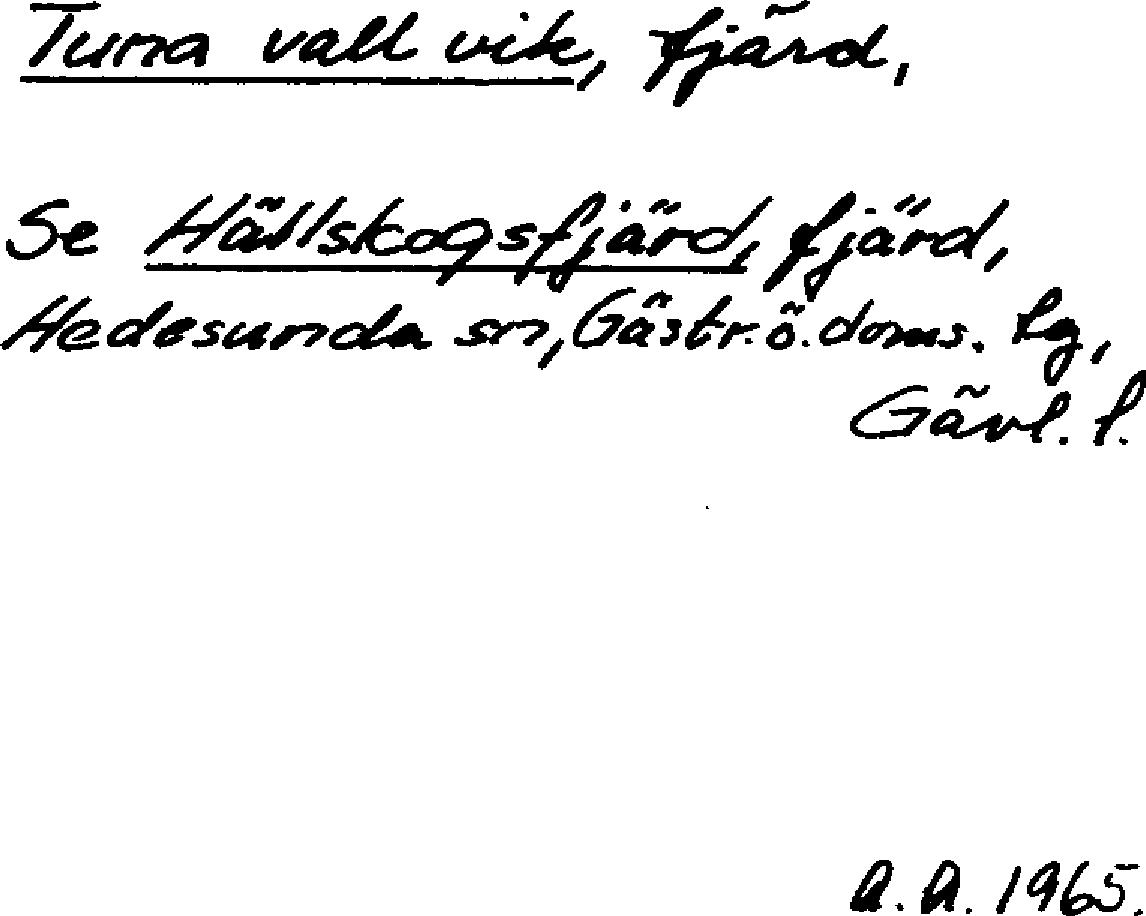 Tuna vall vik, fjärd,
Se Hällskogsfjärd, fjärd,
Hedesunda sn, Gästr. ö. doms. lg,
Gävl. l.
A. A. 1965.